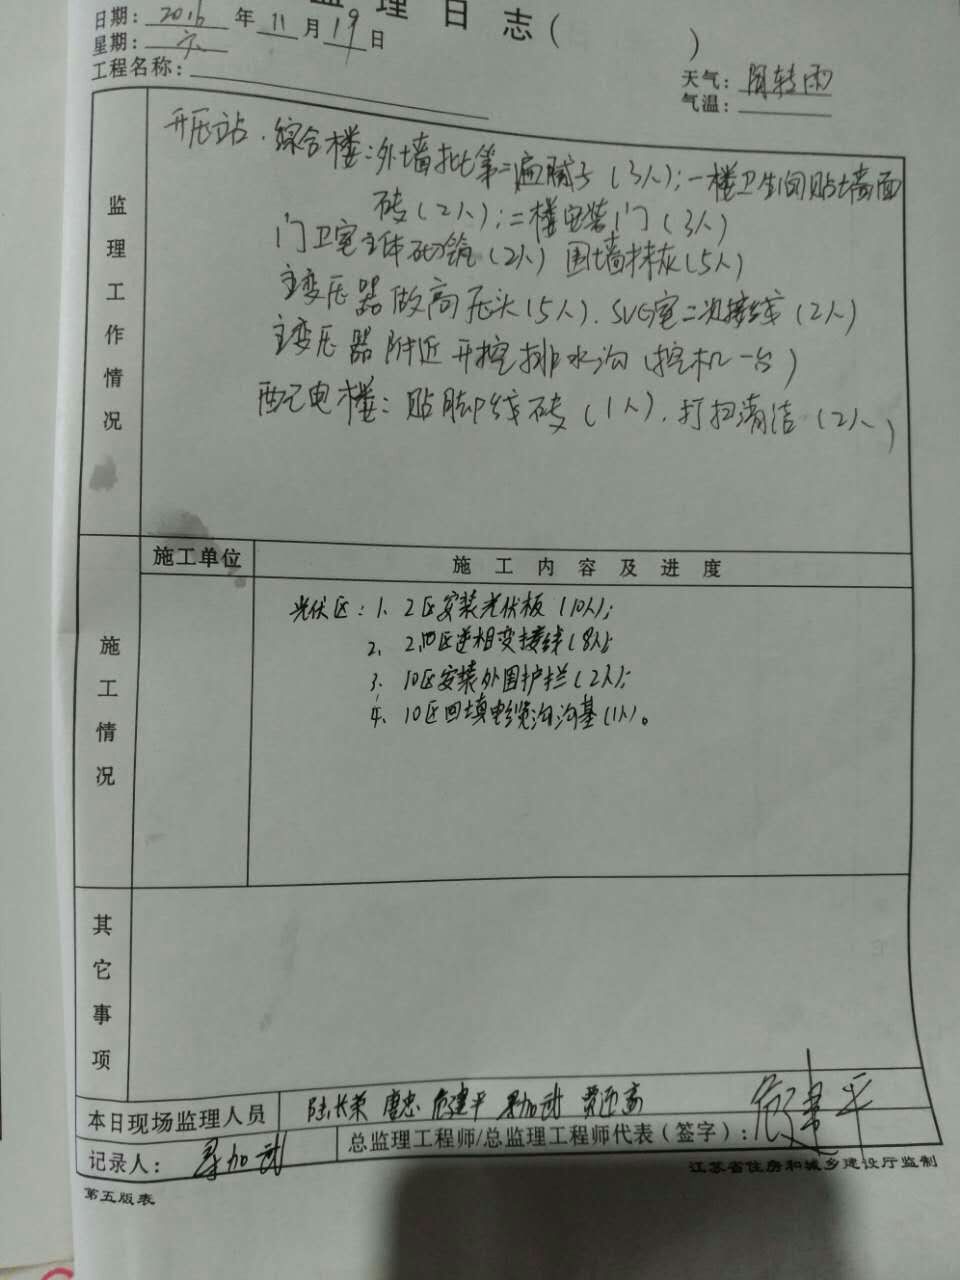 监理日志( )
日期: 2016 年 11 月 19 日
星期: 六
工程名称:
天气: 阴转雨
气温:
监理工作情况
开压站.综合楼:外墙批第二遍腻子(3人);一楼卫生间贴墙面
砖(2人);二楼安装门(3人)
门卫室主体砌筑(2人) 围墙抹灰(5人)
主变压器做高压头(5人).SVG室二次接线(2人)
主变压器附近开挖排水沟(挖机一台)
配电楼:贴脚线砖(1人).打扫清洁(2人)
施工情况
施工单位
施工内容及进度
光伏区:1、2区安装光伏板(10人);
2、2,10区逆相变接线(8人);
3、10区安装外围护栏(2人);
4、10区回填电缆沟沟基(1人)。
其它事项
本日现场监理人员 陆长荣 唐忠 危建平
记录人:
总监理工程师/总监理工程师代表(签字): 危建平
江苏省住房和城乡建设厅监制
第五版表